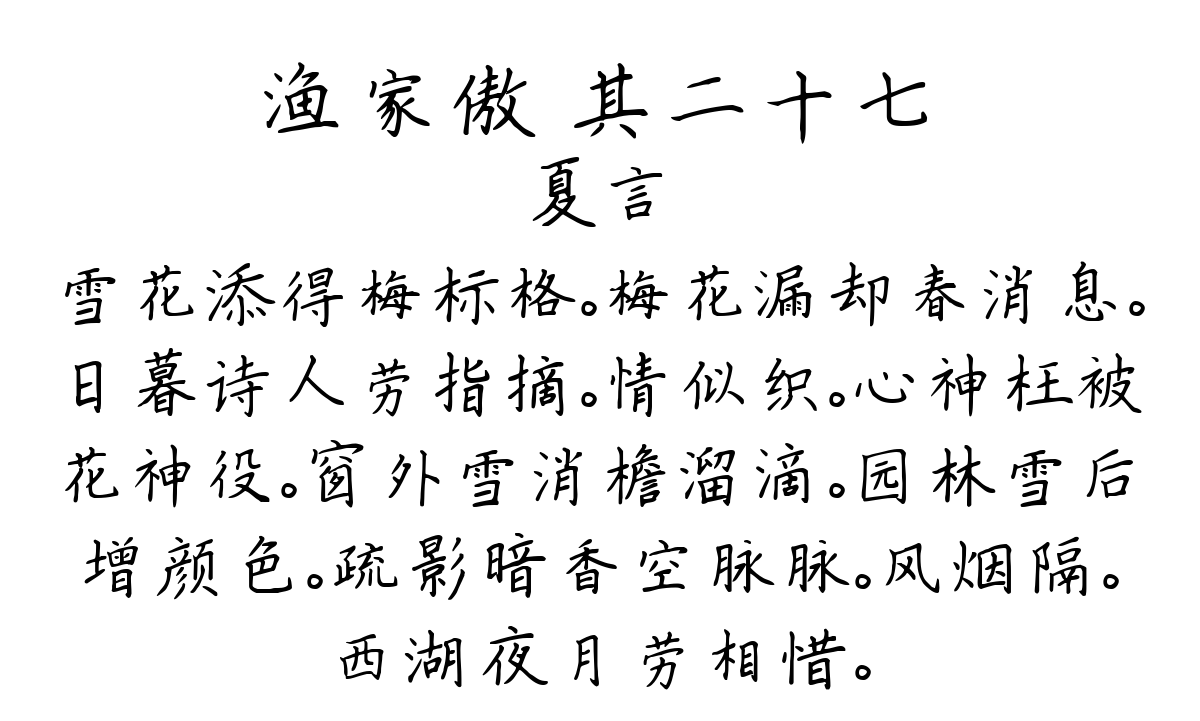 渔家傲 其二十七
夏言
雪花添得梅标格。梅花漏却春消息。
日暮诗人劳指摘。情似织。心神枉被
花神役。窗外雪消檐溜滴。园林雪后
增颜色。疏影暗香空脉脉。风烟隔。
西湖夜月劳相惜。